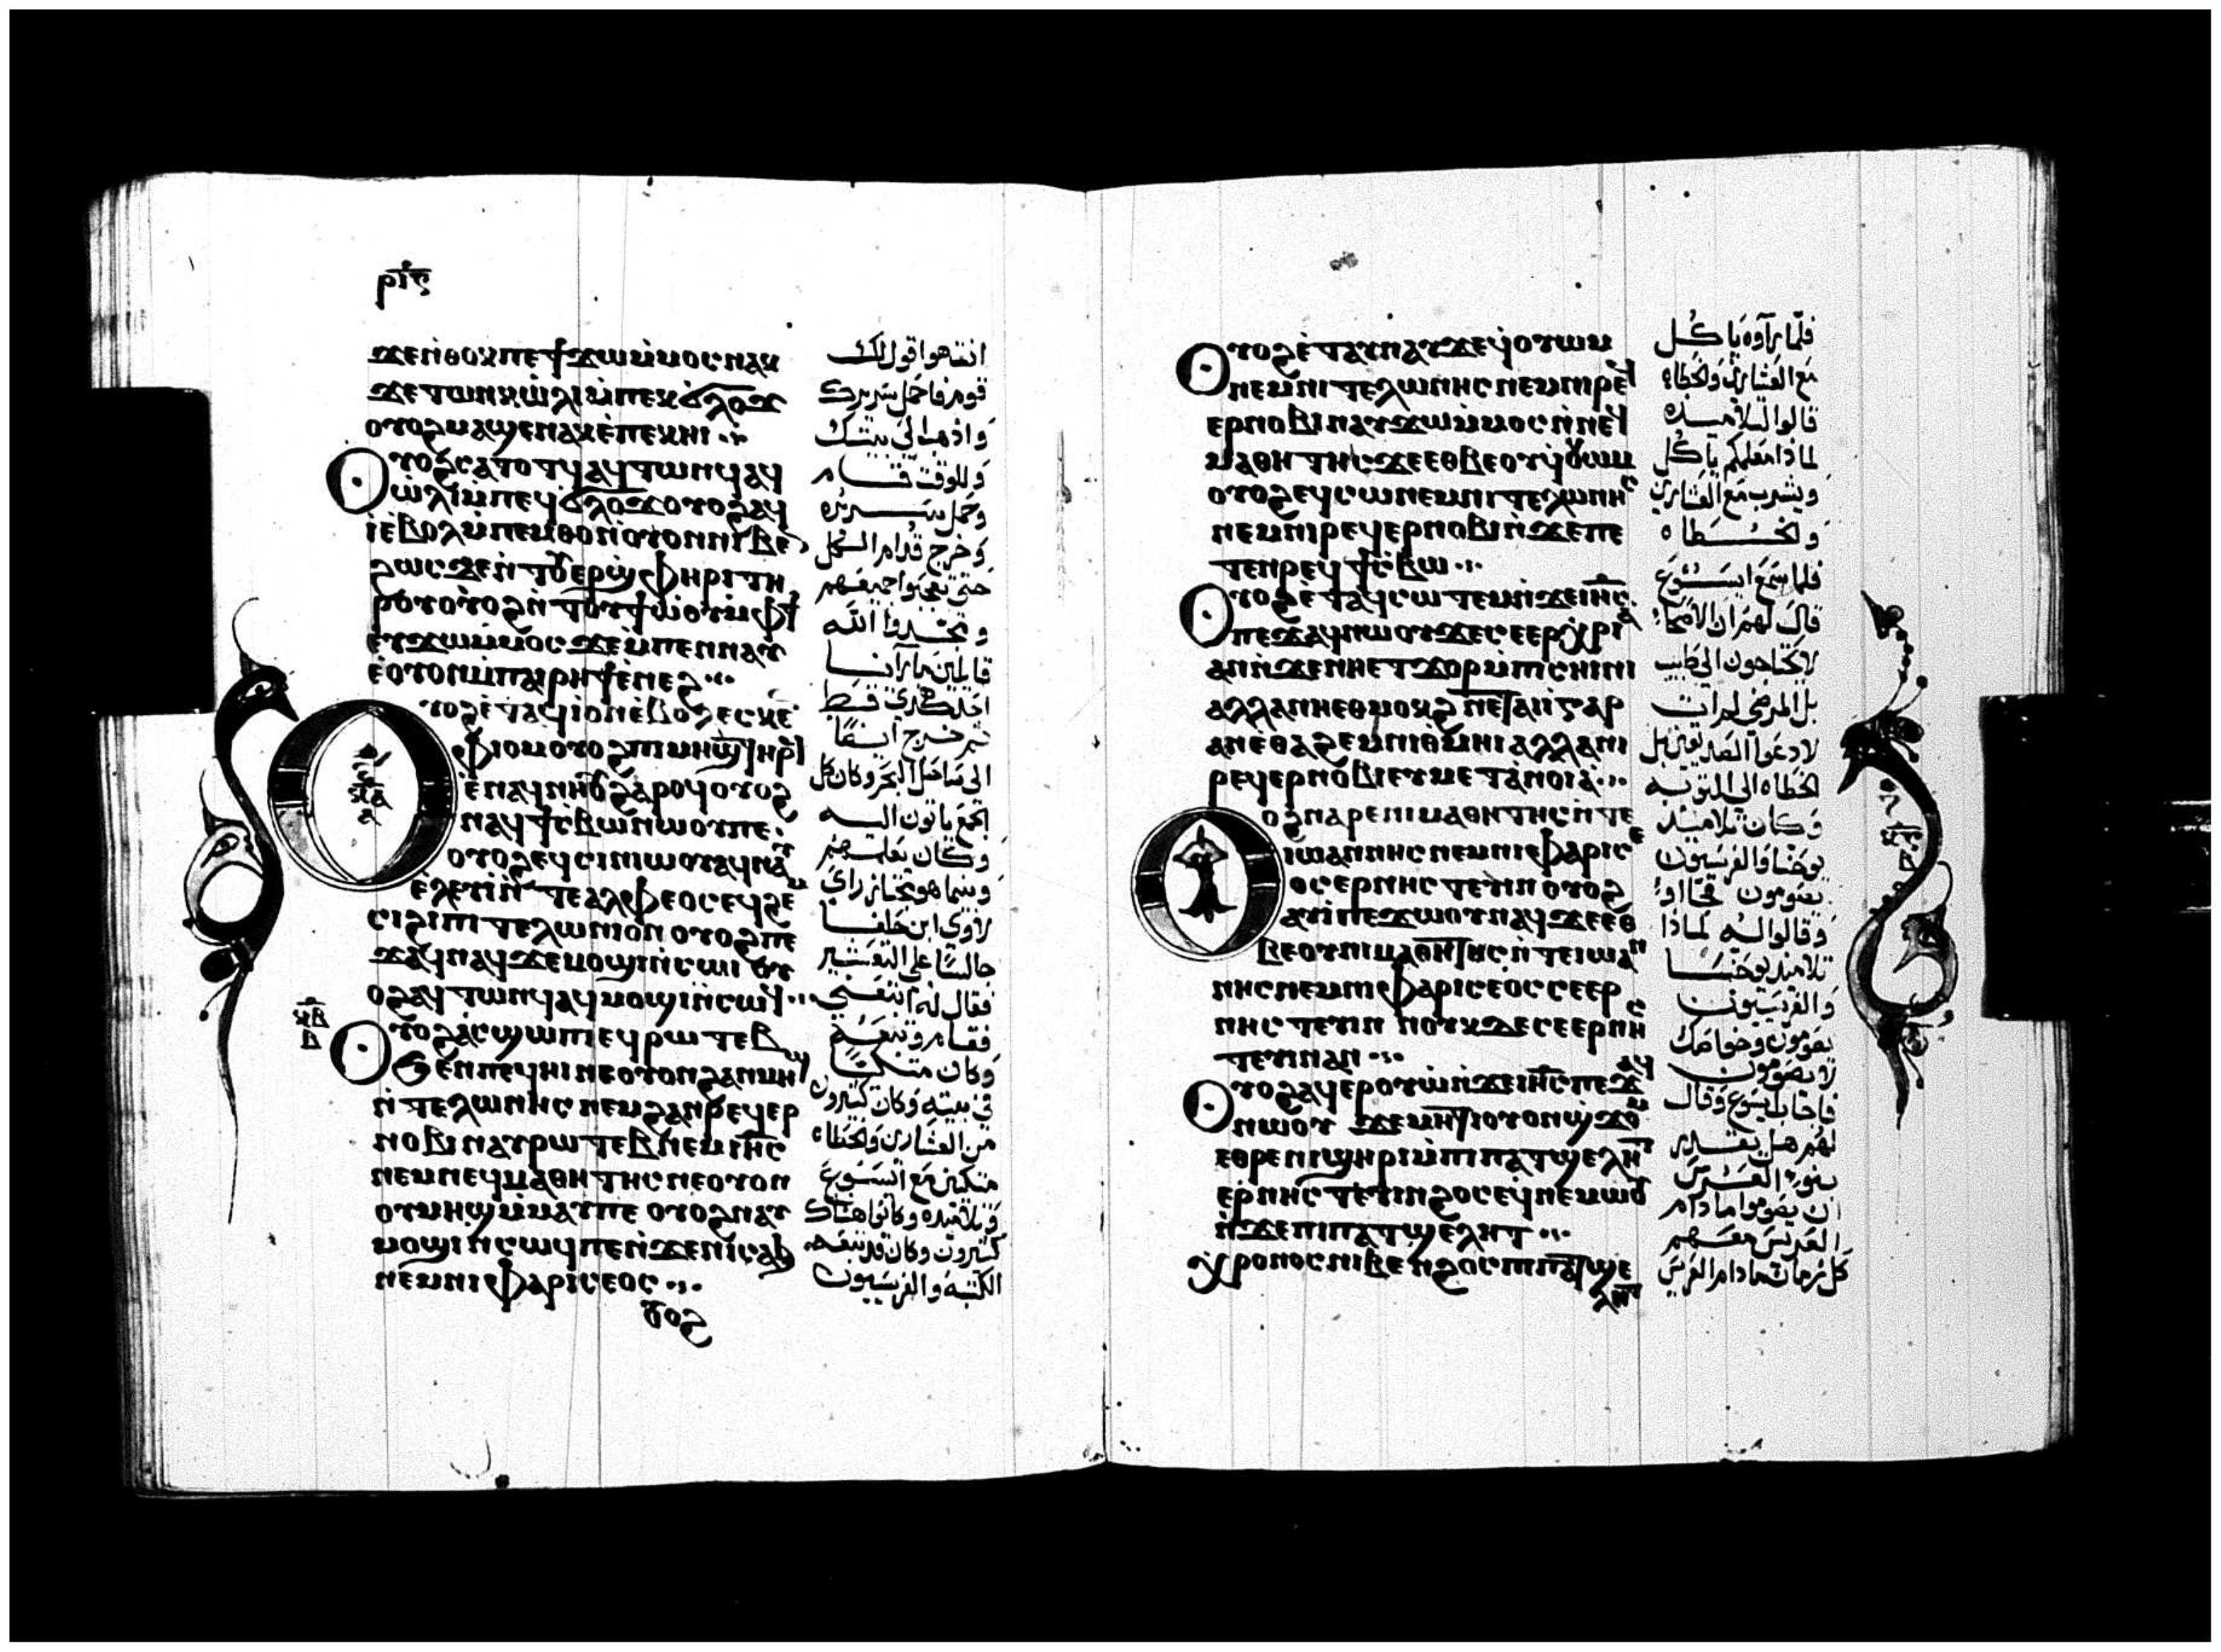 ⲣⲓⲋ
ϫⲉⲛⲑⲟⲕⲡⲉϯϫⲱⲙⲙⲟⲥⲛⲁⲕ
ϫⲉⲧⲱⲛⲕⲱⲗⲓⲙⲡⲉⲕϭⲗⲟϫ
ⲟⲩⲟϩⲙⲁϣⲉⲛⲁⲕⲉⲡⲉⲕⲏⲓ
ⲟⲩⲟϩⲥⲁⲧⲟⲧϥⲁϥⲧⲱⲛϥⲁϥ
ⲱⲗⲓⲙⲡⲉϥϭⲗⲟϫⲟⲩⲟϩⲁϥ
ⲓⲉⲃⲟⲗⲙⲡⲉⲙⲑⲟⲛⲟⲩⲟⲛⲛⲓⲃⲉ
ϩⲱⲥϫⲉⲛⲧⲟⲩⲉⲣϣⲫⲏⲣⲓⲧⲏ
ⲣⲟⲩⲟⲩⲟϩⲛⲧⲟⲩϯⲱⲟⲩⲙⲫϯ
ⲉⲩϫⲱⲙⲙⲟⲥϫⲉⲙⲡⲉⲛⲛⲁⲩ
ⲉⲟⲩⲟⲛⲙⲡⲁⲓⲣⲏϯⲉⲛⲉϩ
ⲟⲩⲟϩⲉⲧⲁϥⲓⲟⲛⲉⲃⲟⲗⲉⲥⲕⲉⲛ
ⲫⲓⲟⲙⲟⲩⲟϩⲡⲓⲙⲏϣⲧⲏⲣϥ
ⲉⲛⲁϥⲛⲏⲟⲩϩⲁⲣⲟϥⲟⲩⲟϩ
ⲛⲁϥϯⲥⲃⲱⲛⲱⲟⲩⲡⲉ
ⲟⲩⲟϩⲉϥⲥⲓⲛⲓⲱⲟⲩⲁϥⲛⲁⲩ
ⲉⲗⲉⲩⲓⲛⲧⲉⲁⲗⲫⲉⲟⲥⲉϥϩⲉⲙ
ⲥⲓϩⲓⲡⲓⲧⲉⲗⲱⲛⲓⲟⲛⲟⲩⲟϩⲡⲉ
ϫⲁϥⲛⲁϥϫⲉⲙⲟϣⲓⲛⲥⲱⲓⲟⲩ
ⲟϩⲁϥⲧⲱⲛϥⲁϥⲙⲟϣⲓⲛⲥⲱϥ
ⲟⲩⲟϩⲁⲥϣⲱⲡⲓⲉϥⲣⲱⲧⲉⲃ
ϧⲉⲛⲡⲉϥⲏⲓⲛⲉⲟⲩⲟⲛϩⲁⲛⲙⲏϣ
ⲛⲧⲉⲗⲱⲛⲏⲥⲛⲉⲙϩⲁⲛⲣⲉϥⲉⲣ
ⲛⲟⲃⲓⲛⲁⲩⲣⲱⲧⲉⲃⲛⲉⲙⲓⲏⲥ
ⲛⲉⲙⲛⲉϥⲙⲁⲑⲏⲧⲏⲥⲛⲉⲟⲩⲟⲛ
ⲟⲩⲙⲏϣⲙⲙⲁⲩⲡⲉⲟⲩⲟϩⲛⲁⲩ
ⲙⲟϣⲓⲛⲥⲱϥⲡⲉⲛϫⲉⲛⲓⲥⲁϧ
ⲛⲉⲙⲛⲓⲫⲁⲣⲓⲥⲉⲟⲥ
ⲟⲩⲟϩ
انت هوا قول لك
قوم فاحمل سريرك
واذهب الى بيتك
وللوقت قام
وحمل سريره
وخرج قدام الكل
حتى تعجبوا جميعهم
ومجدوا الله
قايلين ما راينا
احد هكذي قط
ثم خرج ايضا
الى ساحل البحر وكان كل
الجمع ياتون اليه
وكان يعلمهم
وبينما هو مجتاز راي
لاوى ابن حلفا
جالسا على التعشير
فقال له اتبعني
فقام وتبعه
وكان متكئا
في بيته وكان كثيرون
من العشارين والخطاه
متكئين مع ايسوع
وتلاميذه وكانوا هناك
كثيرون وكان قد تبعه
الكتبه والفريسيون
ⲟⲩⲟϩⲉⲧⲁⲩⲛⲁⲩϫⲉϥⲟⲩⲱⲙ
ⲛⲉⲙⲛⲓⲧⲉⲗⲱⲛⲏⲥⲛⲉⲙⲛⲓⲣⲉϥ
ⲉⲣⲛⲟⲃⲓⲛⲁⲩϫⲱⲙⲙⲟⲥⲛⲛⲉϥ
ⲙⲁⲑⲏⲧⲏⲥϫⲉⲉⲑⲃⲉⲟⲩϥⲟⲩⲱⲙ
ⲟⲩⲟϩⲉϥⲥⲱⲛⲉⲙⲛⲓⲧⲉⲗⲱⲛⲏⲥ
ⲛⲉⲙⲛⲓⲣⲉϥⲉⲣⲛⲟⲃⲓⲛϫⲉⲡⲉ
ⲧⲉⲛⲣⲉϥϯⲥⲃⲱ
ⲟⲩⲟϩⲉⲧⲁϥⲥⲱⲧⲉⲙⲛϫⲉⲓⲏⲥ
ⲡⲉϫⲁϥⲛⲱⲟⲩϫⲉⲥⲉⲉⲣⲭⲣⲓⲁ
ⲁⲛⲛϫⲉⲛⲏⲉⲧϫⲟⲣⲙⲡⲓⲥⲏⲓⲛⲓ
ⲁⲗⲗⲁⲛⲏⲉⲑⲙⲟⲕϩⲛⲉⲧⲁⲓⲓⲅⲁⲣ
ⲁⲛⲉⲑⲁϩⲉⲙⲛⲓⲑⲙⲏⲓⲁⲗⲗⲁⲛⲓ
ⲣⲉϥⲉⲣⲛⲟⲃⲓⲉⲩⲙⲉⲧⲁⲛⲟⲓⲁ
ⲟⲩⲟϩⲛⲁⲣⲉⲛⲓⲙⲁⲑⲏⲧⲏⲥⲛⲧⲉ
ⲓⲱⲁⲛⲛⲏⲥⲛⲉⲙⲛⲓⲫⲁⲣⲓⲥⲉ
ⲟⲥⲉⲣⲛⲏⲥⲧⲉⲩⲓⲛⲟⲩⲟϩ
ⲁⲩⲓⲡⲉϫⲱⲟⲩⲛⲁϥϫⲉⲉⲑ
ⲃⲉⲟⲩⲛⲓⲙⲁⲑⲏⲧⲏⲥⲛⲧⲉⲓⲱⲁⲛ
ⲛⲏⲥⲛⲉⲙⲛⲓⲫⲁⲣⲓⲥⲉⲟⲥⲥⲉⲉⲣ
ⲛⲏⲥⲧⲉⲩⲓⲛ ⲛⲟⲩⲕⲇⲉⲥⲉⲉⲣⲛⲏⲥ
ⲧⲉⲩⲓⲛⲁⲛ
ⲟⲩⲟϩⲁϥⲉⲣⲟⲩⲱⲛϫⲉⲓⲏⲥⲡⲉϫⲁϥ
ⲛⲱⲟⲩ ϫⲉⲙⲏϯⲟⲩⲟⲛϣϫⲟⲙ
ⲉⲑⲣⲉⲛⲓϣⲏⲣⲓⲙⲡⲓⲡⲁⲧϣⲉⲗⲏⲧ
ⲉⲣⲛⲏⲥⲧⲉⲩⲓⲛϩⲟⲥⲉϥⲛⲉⲙⲱⲟⲩ
ⲛϫⲉⲡⲓⲡⲁⲧϣⲉⲗⲏⲧ
ⲭⲣⲟⲛⲟⲥⲛⲓⲃⲉⲛϩⲟⲥⲡⲓⲡⲁⲧϣⲉ
ⲗⲏⲧ
فلما رآوه ياكل
مع العشارين والخطاه
قالوا لتلاميذه
لماذا معلمكم ياكل
ويشرب مع العشارين
والخطاه
فلما سمع ايسوع
قال لهم ان الاصحا
لا يحتاجون الى طبيب
بل المرضى لم ات
لادعوا الصديقين بل
الخطاه الى التوبه
وكان تلاميذ
يوحنا والفريسيون
يصومون فجاوا
وقالوا له لماذا
تلاميذ يوحنا
والفريسيون
يصومون وخواصك
لا يصومون
فاجاب ايسوع وقال
لهم هل يقدر
بنو العرس
ان يصوموا مادام
العريس معهم
كل زمان مادام العريس